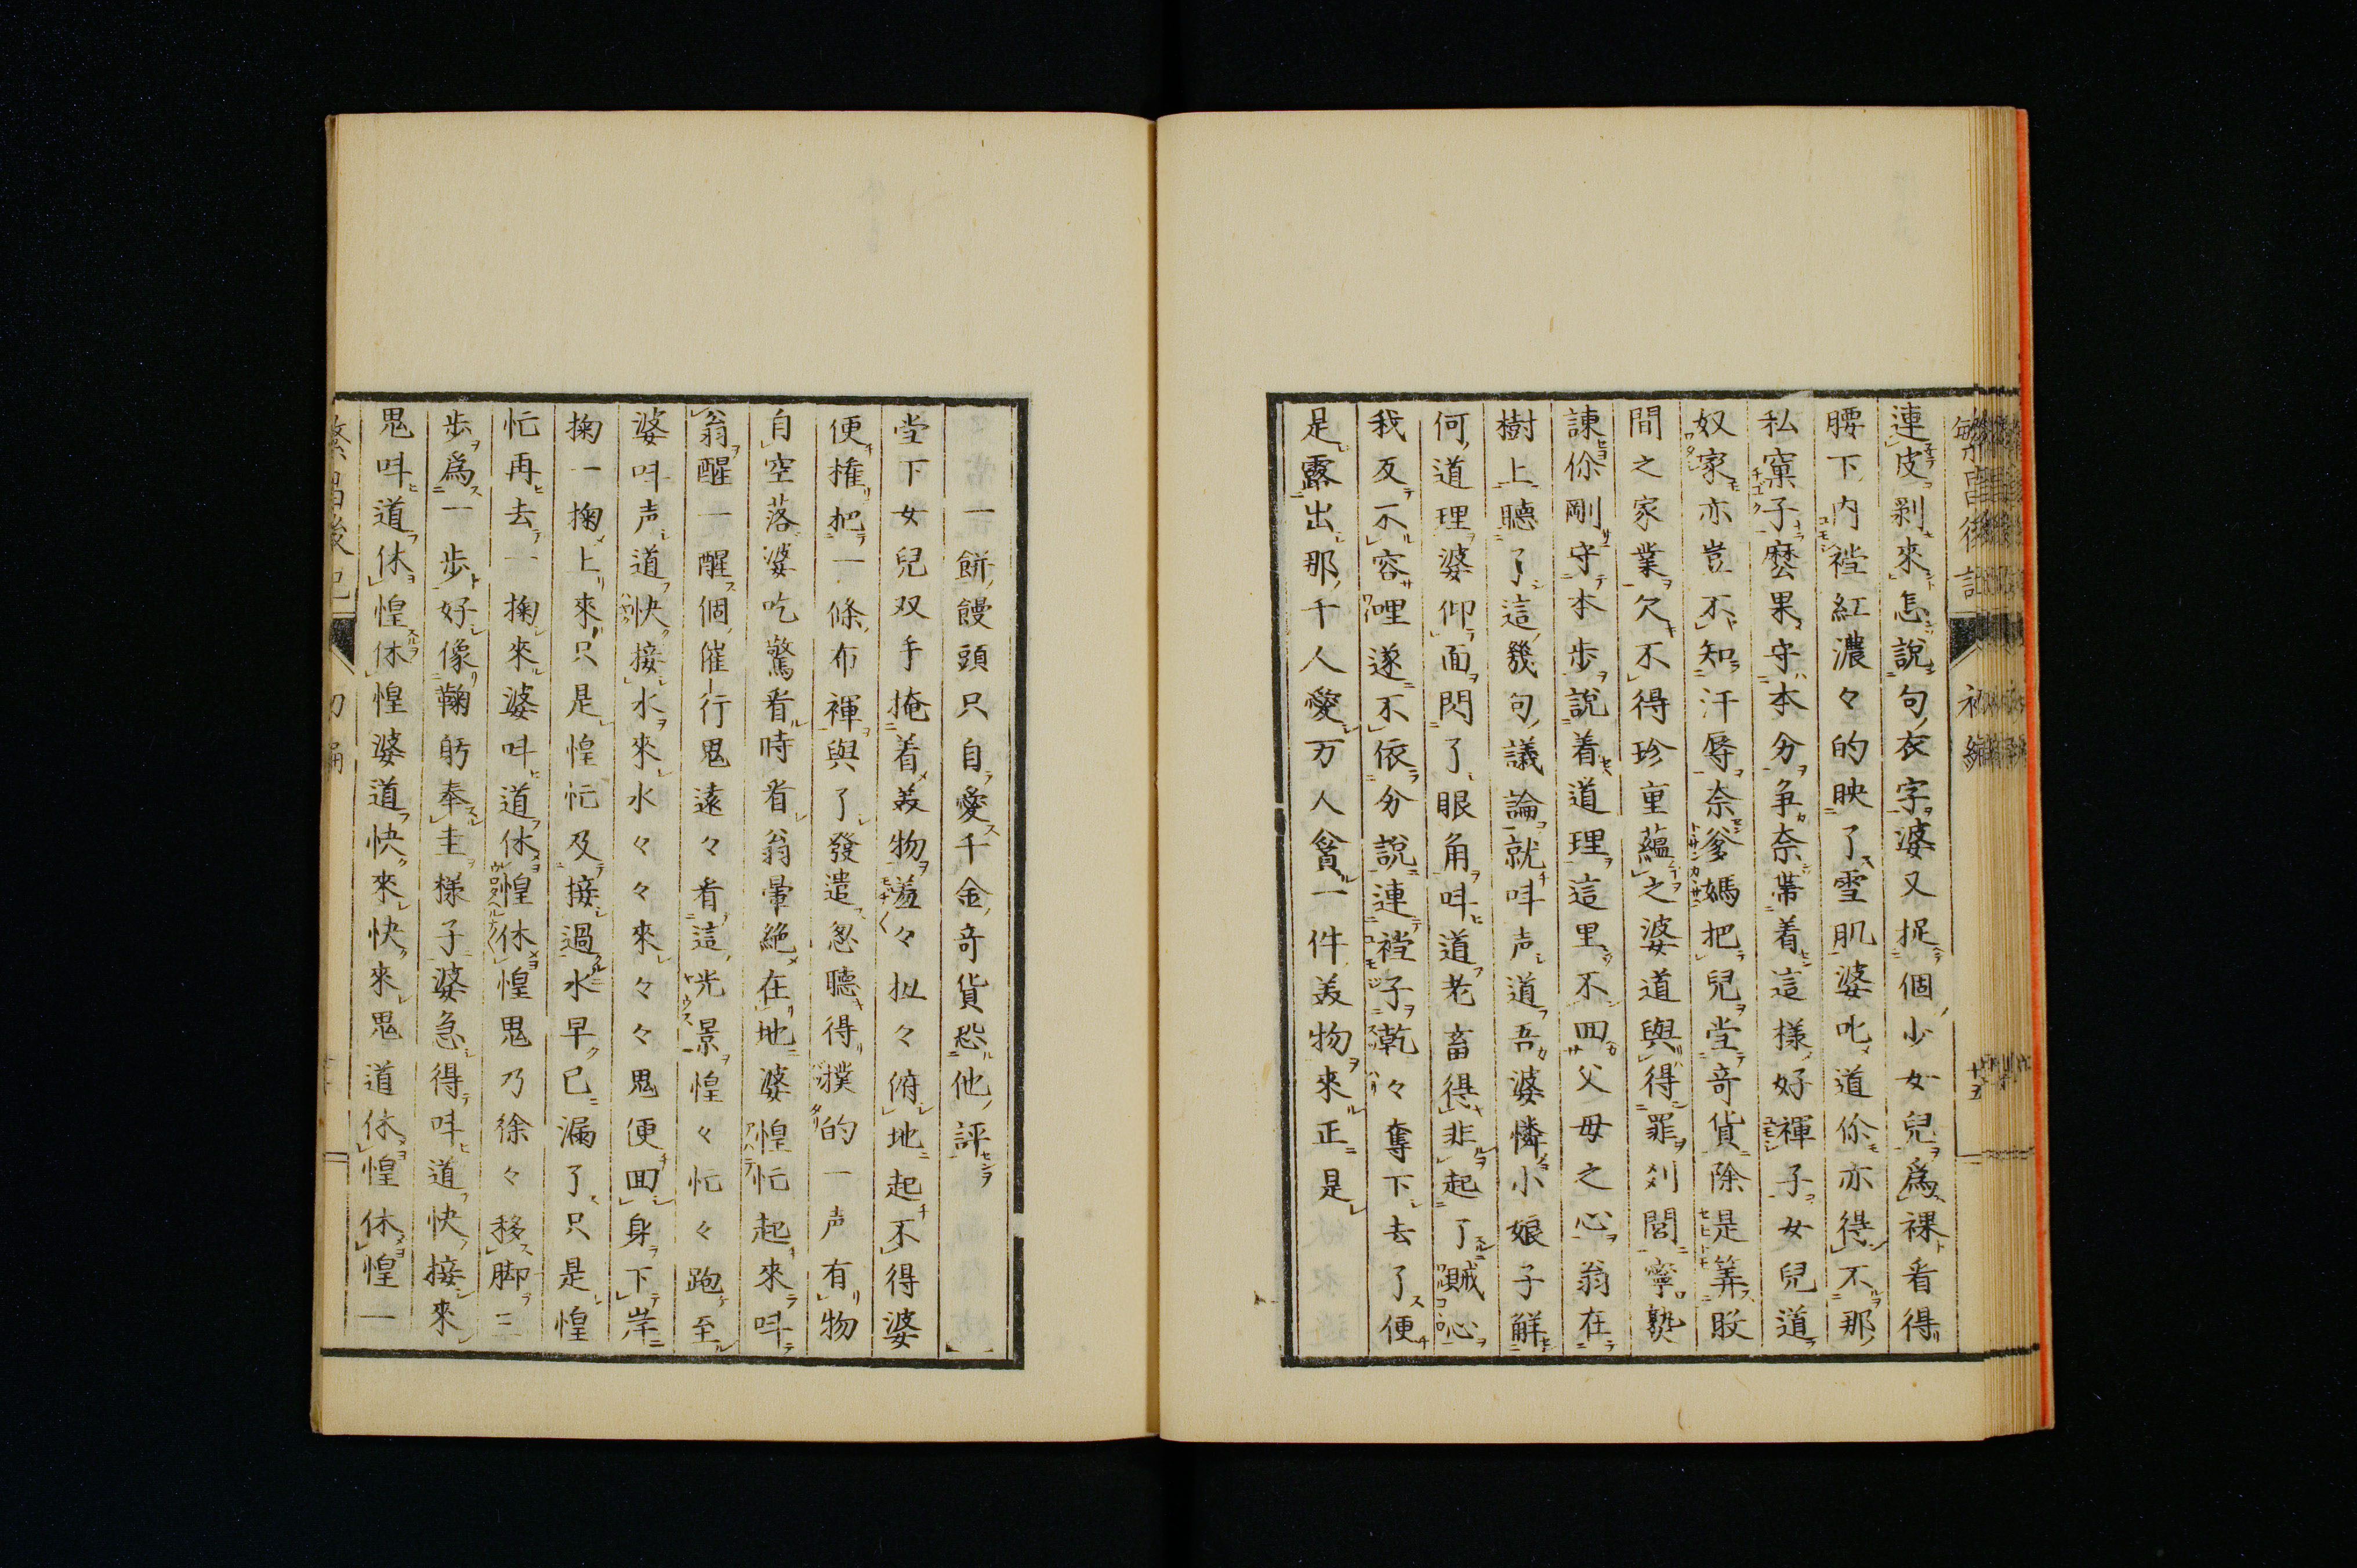 連皮剥來怎說句衣字婆又捉個少女兒爲裸看得
腰下内䙎紅濃々的映了雪肌婆叱道你亦得不那
私窠子麽果守本分争奈帶着這様好褌子女兒道
奴家亦豈不知汗辱奈爹媽把兒堂奇貨除是筭股
間之家業欠不得珍重蘊之婆道與得罪刈閻寧熟
諫你剛守本歩說着道理這里不四父母之心翁在
樹上聽了這幾句議論就呌声道吾婆憐小娘子解
何道理婆仰面閃了眼角呌道老畜得非起了賊心
我反不容哩遂不依分說連䙎子乾々奪下去了便
是露出那千人愛万人貪一件美物來正是
一餅饅頭只自愛千金奇貨恐他評
堂下女兒双手掩着美物羞々扯々俯地起不得婆
便推把一條布褌與了發遣忽聽得撲的一声有物
自空落婆吃驚看時看翁暈絶在地婆惶忙起來呌
翁醒一醒個催行鬼遠々看這光景惶々忙々跑至
婆呌声道快接水來水々々來々々鬼便回身下岸
掬一掬上來只是惶忙及接過水早已漏了只是惶
忙再去一掬來婆呌道休惶休惶鬼乃徐々移脚三
歩爲一歩好像鞠躬奉圭様子婆急得呌道快接來
鬼呌道休惶休惶婆道快來快來鬼道休惶休惶一